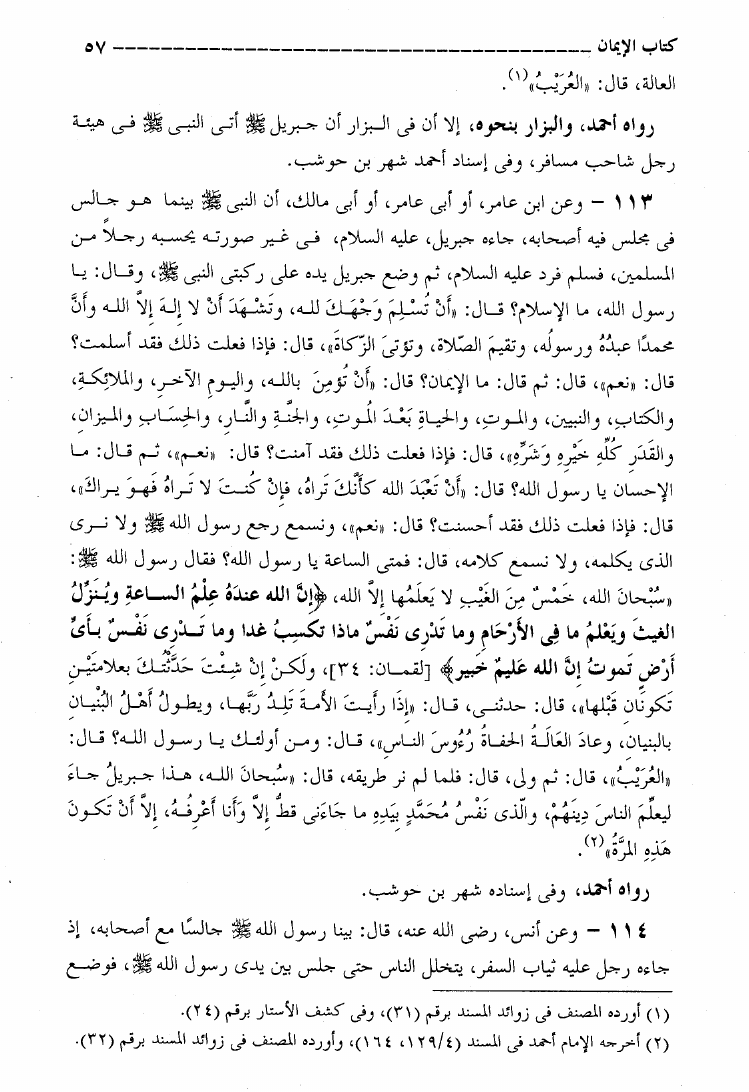 كتاب الإيمان ــــــــــــــــــــــــــــــــــــــــــــــــــــــــــــ ٥٧
العالة، قال: «العُرَيْبُ»(١).
رواه أحمد، والبزار بنحوه، إلا أن فى البزار أن جبريل ﷺ أتى النبى ﷺ فى هيئة
رجل شاحب مسافر، وفى إسناد أحمد شهر بن حوشب.
١١٣ – وعن ابن عامر، أو أبى عامر، أو أبى مالك، أن النبى ﷺ بينما هو جالس
فى مجلس فيه أصحابه، جاءه جبريل، عليه السلام، فى غير صورته يحسبه رجلاً من
المسلمين، فسلم فرد عليه السلام، ثم وضع جبريل يده على ركبتى النبى ﷺ، وقال: يا
رسول الله، ما الإسلام؟ قال: «أَنْ تُسْلِمَ وَجْهَكَ لله، وتَشْهَدَ أَنْ لا إِلهَ إِلاَّ الله وأَنَّ
محمدًا عبدُهُ ورسولُه، وتقيمَ الصَّلاة، وتؤتىَ الزَّكاةَ»، قال: فإذا فعلت ذلك فقد أسلمت؟
قال: «نعم»، قال: ثم قال: ما الإيمان؟ قال: «أَنْ تُؤمِنَ بالله، واليومِ الآخرِ، والملائِكةِ،
والكتابِ، والنبيين، والموتِ، والحياةِ بَعْدَ الموتِ، والجنَّةِ والنَّارِ، والحِسَابِ والميزانِ،
والقَدَرِ كُلِّهِ خَيْرِهِ وَشَرِّهِ»، قال: فإذا فعلت ذلك فقد آمنت؟ قال: «نعم»، ثم قال: ما
الإحسان يا رسول الله؟ قال: «أَنْ تَعْبُدَ الله كأَنَّكَ تَراهُ، فإِنْ كُنتَ لا تَراهُ فَهوَ يراكَ»،
قال: فإذا فعلت ذلك فقد أحسنت؟ قال: «نعم»، ونسمع رجع رسول الله ﷺ ولا نرى
الذى يكلمه، ولا نسمع كلامه، قال: فمتى الساعة يا رسول الله؟ فقال رسول الله ﷺ:
«سُبْحانَ الله، خَمْسٌ مِنَ الغَيْبِ لا يَعلَمُها إلاَّ الله، ﴿إنَّ الله عندَهُ عِلْمُ الساعةِ ويُنَزِّلُ
الغيثَ ويَعْلمُ ما فِى الأَرْحَامِ وما تَدْرِى نَفْسٌ ماذا تكسِبُ غدا وما تَدْرِى نَفْسٌ بأَىِّ
أَرْضٍ تَموتُ إنَّ الله عليمٌ خَبير﴾ [لقمان: ٣٤]، ولَكنْ إِنْ شِئْتَ حَدَّثْتُكَ بعلامتَيْنِ
تَكونَانِ قَبْلَها»، قال: حدثنى، قال: «إذَا رأيتَ الأمةَ تَلِدُ رَبَّها، ويطولُ أَهْلُ البُنْيانِ
بالبنيان، وعادَ العَالَةُ الحفاةُ رُءُوسَ الناسِ»، قال: ومن أولئك يا رسول الله؟ قال:
«العُرَيْبُ»، قال: ثم ولى، قال: فلما لم نر طريقه، قال: «سُبحانَ الله، هذا جبريلُ جاءَ
ليعلِّمَ الناسَ دِينَهُمْ، والّذى نَفْسُ مُحَمَّدٍ بِيَدِهِ ما جَاءَنى قطُّ إلاَّ وَأَنا أَعْرِفُهُ، إلاَّ أَنْ تَكونَ
هَذِهِ المَرَّةُ»(٢).
رواه أحمد، وفى إسناده شهر بن حوشب.
١١٤ – وعن أنس، رضى الله عنه، قال: بينا رسول الله ﷺ جالسًا مع أصحابه، إذ
جاءه رجل عليه ثياب السفر، يتخلل الناس حتى جلس بين يدى رسول الله ﷺ، فوضع
(١) أورده المصنف فى زوائد المسند برقم (٣١)، وفى كشف الأستار برقم (٢٤).
(٢) أخرجه الإمام أحمد فى المسند (١٢٩/٤، ١٦٤)، وأورده المصنف فى زوائد المسند برقم (٣٢).